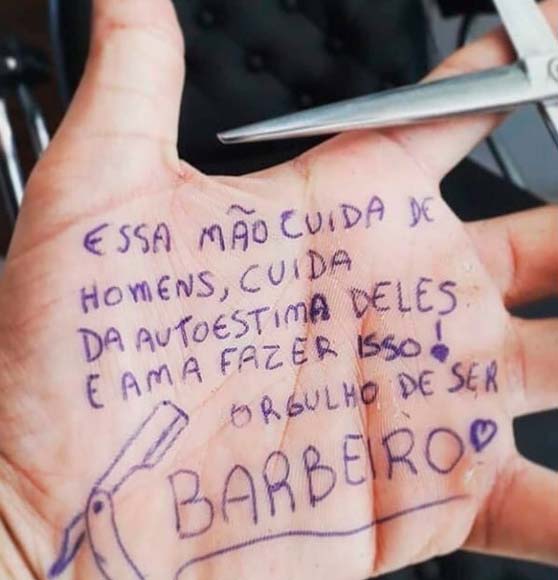 ESSA MÃO CUIDA DE
HOMENS, CUIDA
DA AUTOESTIMA DELES
E AMA FAZER ISSO!
ORGULHO DE SER
BARBEIRO